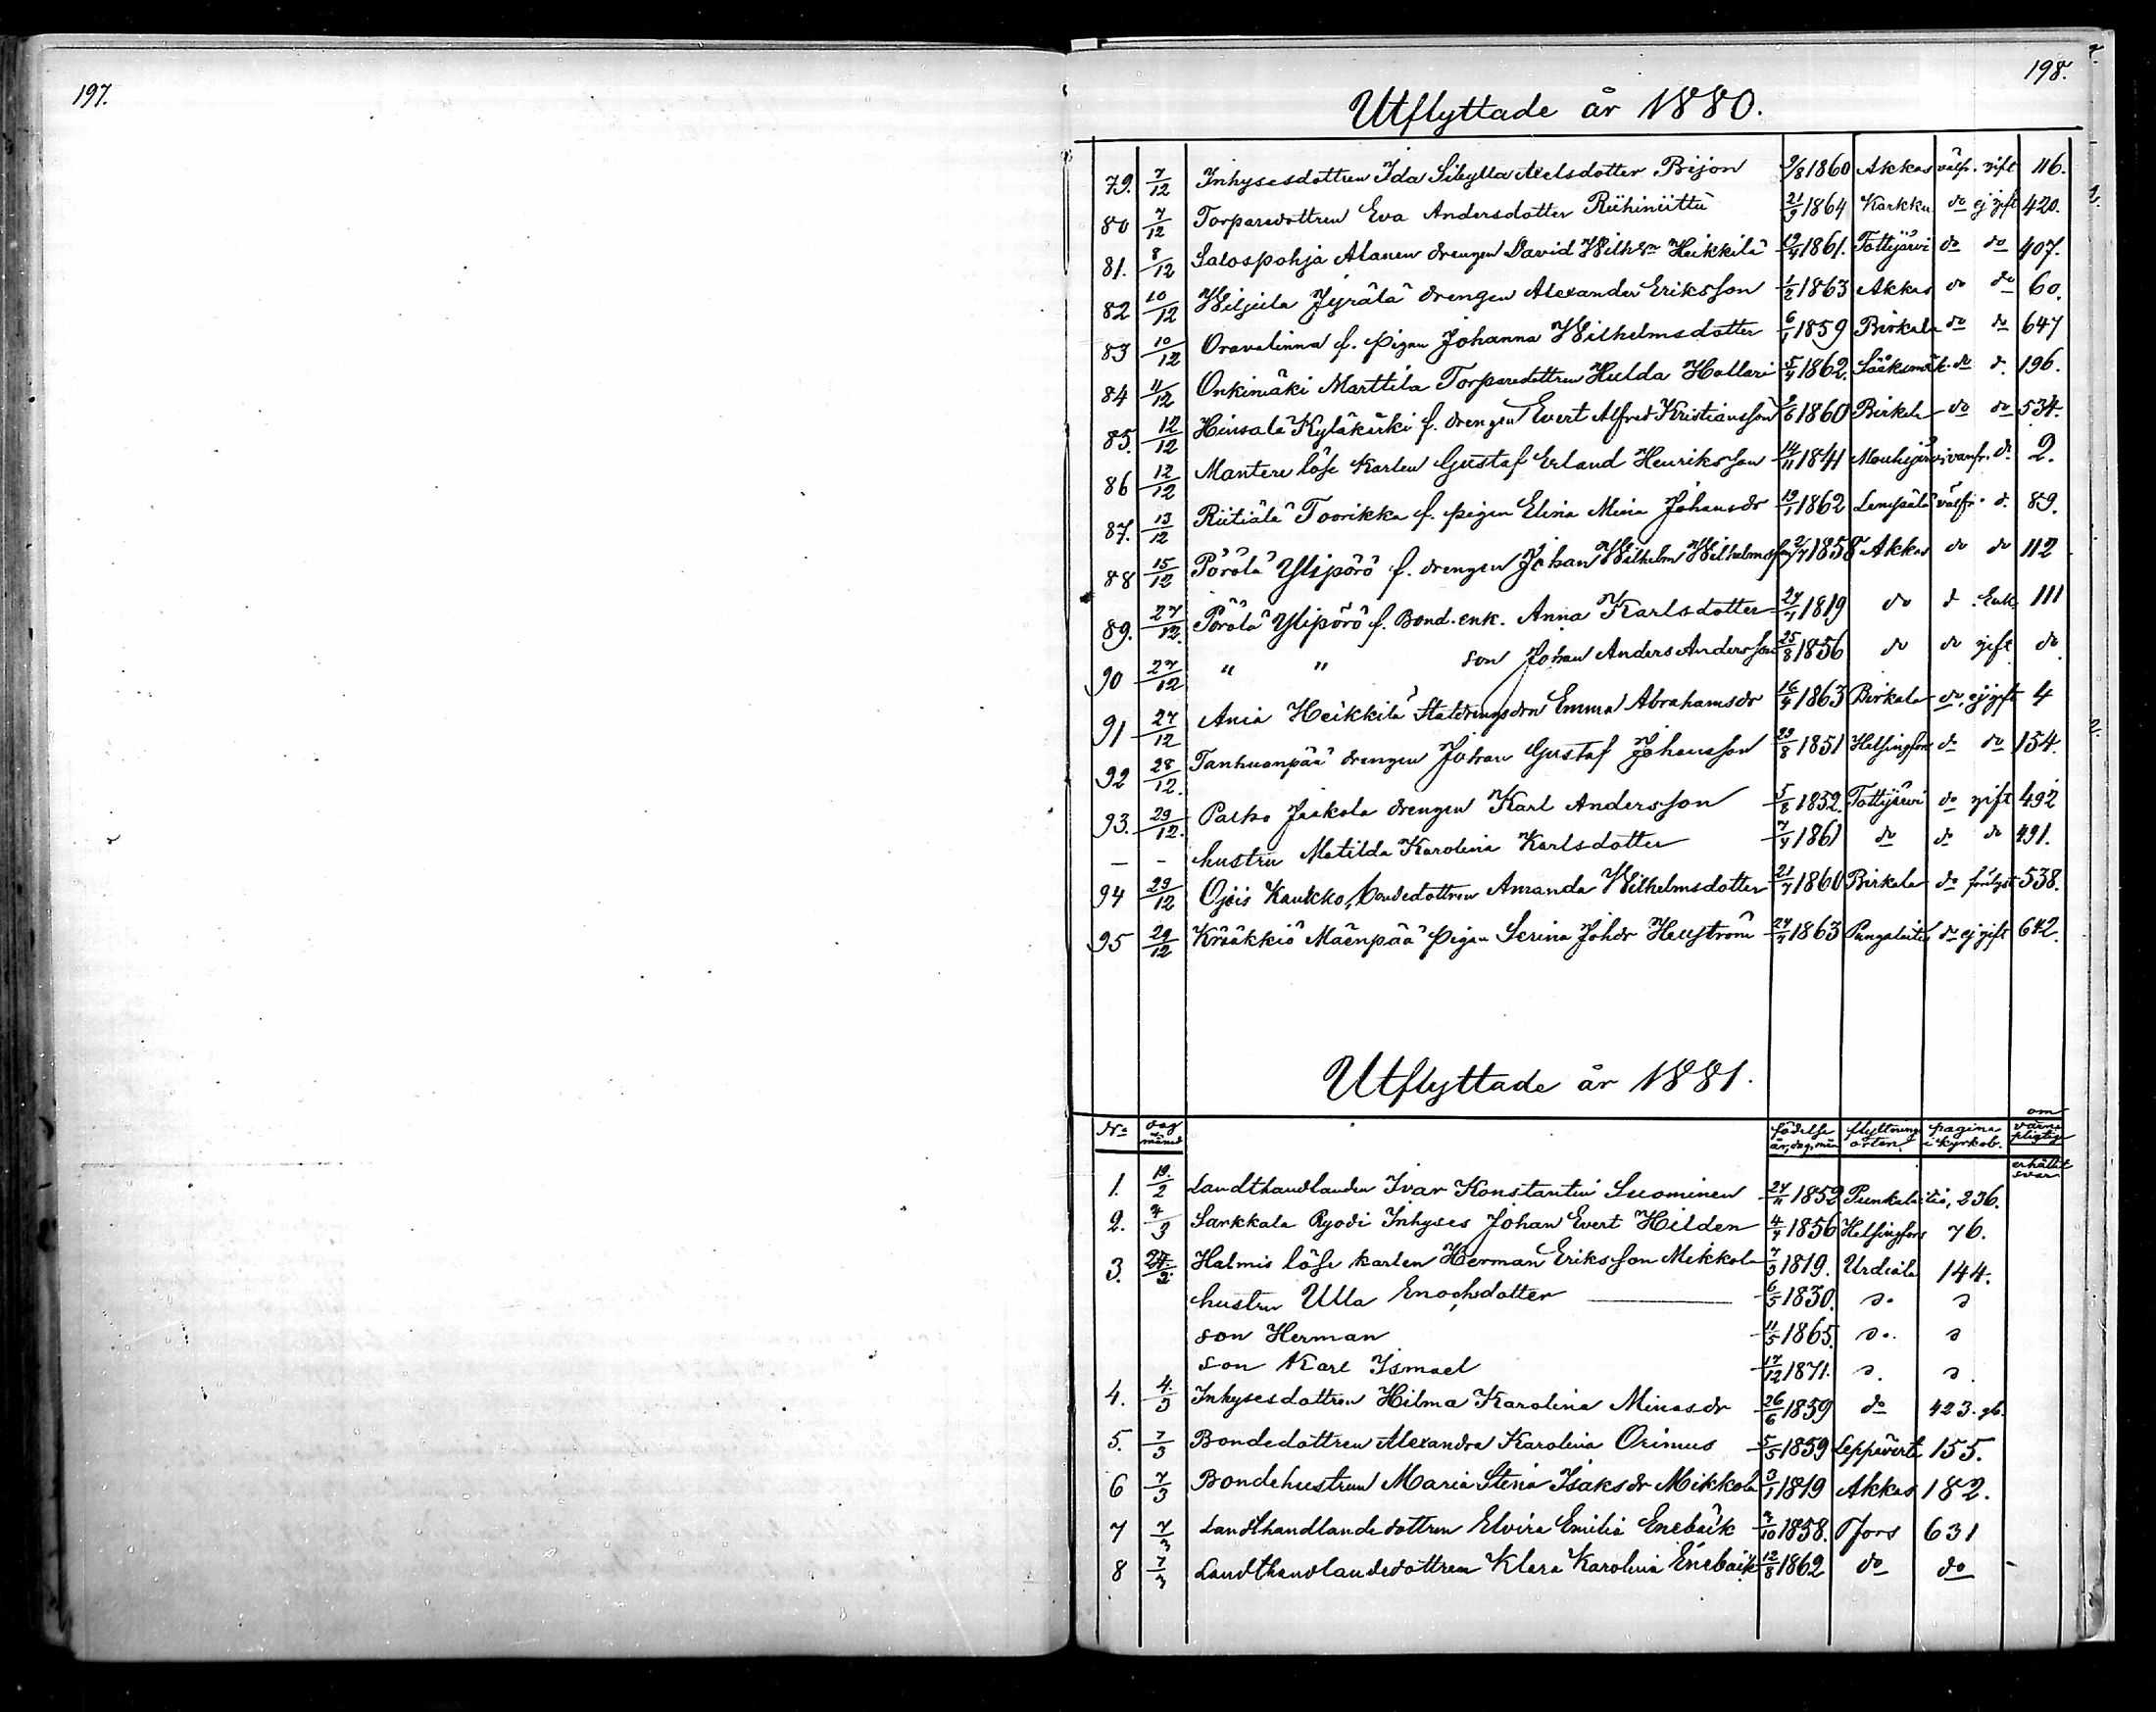 197.
198.
Utflyttade år 1880.
79. 7/12 Inhysesdottren Ida Sibylla Axelsdotter Björn 9/8 1860 Akkas välfr. gift 116.
80 7/12 Torparedottren Eva Andersdotter Riihiniittu 21/9 1864 Karkku do ej gift 420.
81. 8/12 Salospohja Alanen drengen David Wilhsn Heikkilä 19/4 1861. Tottijärvi do do 407.
82 10/12 Wiljula Jyrälä drengen Alexander Eriksson 1/2 1863 Akkas do do 60.
83 10/12 Oravalinna f. pigan Johanna Wilhelmsdotter 6/1 1859 Birkala do do 647
84 11/12 Onkimäki Marttila Torparedottren Hulda Hollari 5/4 1862. Sääksmäk. do d. 196.
85. 12/12 Hinsala Kyläkärki f. drengen Evert Alfred Kristiansson /6 1860 Birkala do do 534.
86 12/12 Mantere löse karlen Gustaf Erland Henriksson 14/11 1841 Mouhijärvi vanfr. d. 2.
87. 13/12 Riitiälä Toorikka f. pigan Elina Mina Johansdr 19/1 1862 Lempälä välfr. d. 89.
88 15/12 Pörölä Ylipörö f. drengen Johan Wilhelm Wilhelmsson 2/7 1858 Akkas do do 112
89. 27/12. Pörölä Ylipörö f. Bond. enk. Anna Karlsdotter 24/7 1819 do d. Enk. 111
90 27/12 " " son Johan Anders Andersson 25/8 1856 do do gift do
91 27/12 Ania Heikkilä Staldrengsdrn Emma Abrahamsdr 16/4 1863 Birkala do, ej gift 4
92 28/12. Tanhuanpää drengen Johan Gustaf Johansson 29/8 1851 Helsingfors do do 154.
93. 29/12. Paiho Jaakola drengen Karl Andersson 5/8 1852. Tottijärvi do gift 492
— - hustru Matilda Karolina Karlsdotter 7/4 1861 do do do 491.
94 29/12 Ojois Kaukko, bondedottren Amanda Wilhelmsdotter 21/7 1860 Birkala do förlyst 538.
95 29/12 Krääkkiö Mäenpää pigan Serina Johdr Hellström 24/7 1863 Pungalaitio do ej gift 642.
Utflyttade år 1881.
No dag månad födelse år, dag, mån flyttnings orten. pagina i kyrkob. om värnepligtige erhållit svar
1. 19./2 Landthandlanden Ivar Konstantin Suominen 24/11 1852 Punkalaitio, 236.
2. 4/3 Sarkkala Ryödi Inhyses Johan Evert Hilden 4/7 1856 Helsingfors 76.
3. 24./2. Halmis löse karlen Herman Eriksson Mikkola 7/3 1819. Urdiala 144.
hustru Ulla Enochsdotter 6/5 1830. d. d
son Herman 11/5 1865. d. d
son Karl Ismael 17/12 1871. d. d.
4. 4./3 Inhysesdottren Hilma Karolina Minasdr 26/6 1859 do 423. gb.
5. 7/3 Bondedottren Alexandra Karolina Orinus 5/5 1859 Leppävirta 155.
6 7/3 Bondehustrun Maria Stina Isaksdr Mikkola 3/1 1819 Akkas 182.
7 7/3 Landthandlandedottren Elvira Emilia Enebäck 3/10 1858. Tfors 631
8 7/3 Landthandlandedottren Klara Karolina Enebäck 12/8 1862 do do